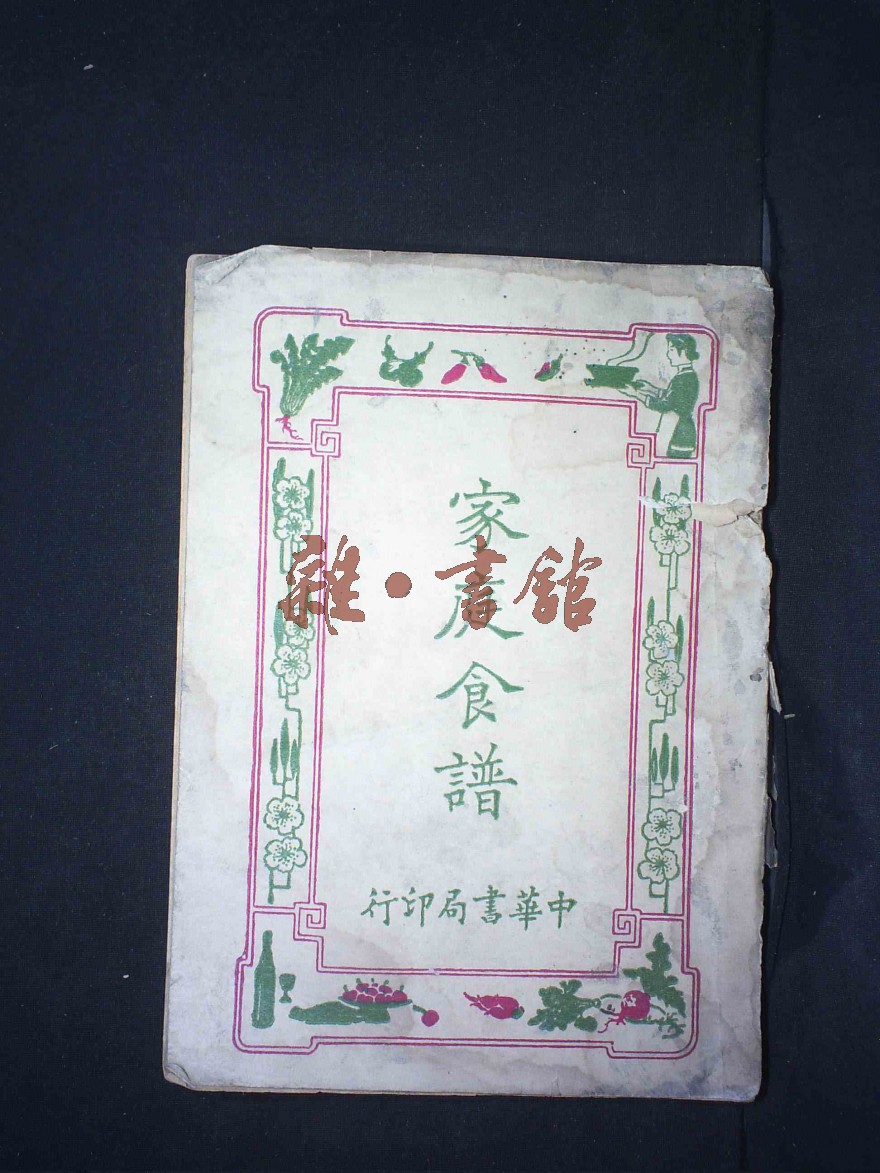 家庭食譜
中華書局印行
雜·書館